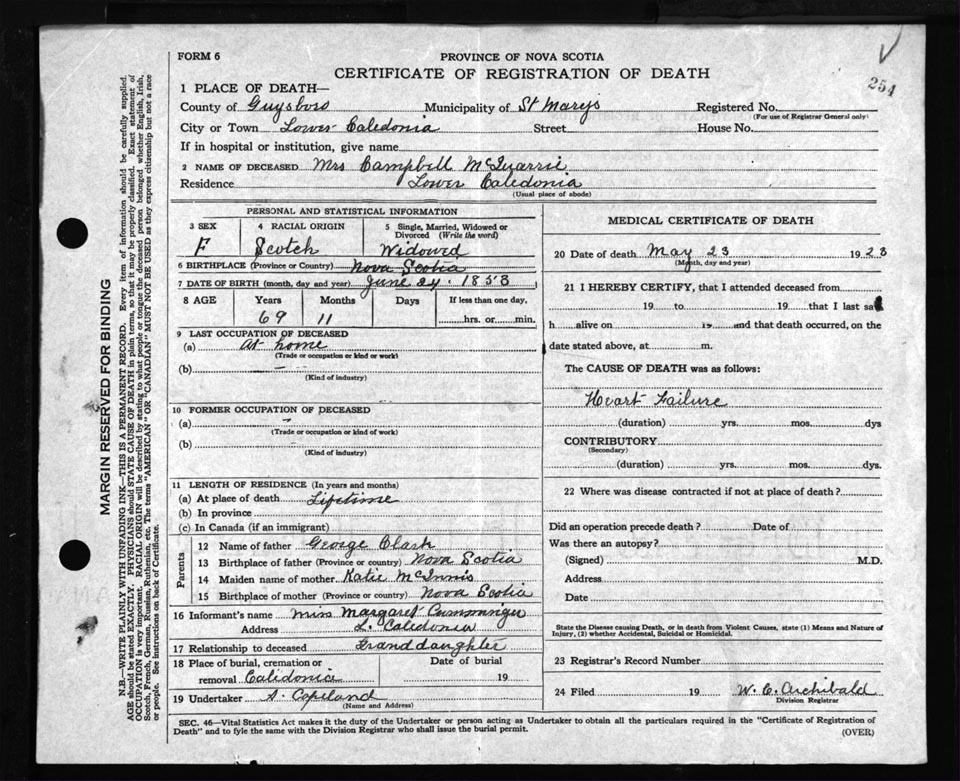 254
FORM 6
PROVINCE OF NOVA SCOTIA
CERTIFICATE OF REGISTRATION OF DEATH
1 PLACE OF DEATH—
County of Guysboro Municipality of St Marys Registered No.
(For use of Registrar General only)
City or Town Lower Caledonia Street House No.
If in hospital or institution, give name
2 NAME OF DECEASED Mrs Campbell McQuarrie
Residence Lower Caledonia
(Usual place of abode)
PERSONAL AND STATISTICAL INFORMATION
3 SEX 4 RACIAL ORIGIN 5 Single, Married, Widowed or Divorced (Write the word)
F Scotch Widowed
6 BIRTHPLACE (Province or Country) Nova Scotia
7 DATE OF BIRTH (month, day and year) June 24. 1853
8 AGE Years Months Days If less than one day,
69 11 hrs. or min.
9 LAST OCCUPATION OF DECEASED
(a) At home
(Trade or occupation or kind or work)
(b) —
(Kind of industry)
10 FORMER OCCUPATION OF DECEASED
(a) -
(Trade or occupation or kind of work)
(b)
(Kind of industry)
11 LENGTH OF RESIDENCE (In years and months)
(a) At place of death Lifetime
(b) In province
(c) In Canada (if an immigrant)
Parents
12 Name of father George Clark
13 Birthplace of father (Province or country) Nova Scotia
14 Maiden name of mother Katie McInnis
15 Birthplace of mother (Province or country) Nova Scotia
16 Informant's name Miss Margaret Cumminger
Address L. Caledonia
17 Relationship to deceased Granddaughter
18 Place of burial, cremation or Date of burial
removal Calidonia 19
19 Undertaker A. Copeland
(Name and Address)
MEDICAL CERTIFICATE OF DEATH
20 Date of death May 23 1923
(Month, day and year)
21 I HEREBY CERTIFY, that I attended deceased from
19 to 19 that I last saw
h alive on 19 and that death occurred, on the
date stated above, at m.
The CAUSE OF DEATH was as follows:
Heart Failure
(duration) yrs. mos. dys
CONTRIBUTORY
(Secondary)
(duration) yrs. mos. dys.
22 Where was disease contracted if not at place of death?
Did an operation precede death? Date of
Was there an autopsy?
(Signed) M.D.
Address
Date
State the Disease causing Death, or in death from Violent Causes, state (1) Means and Nature of
Injury, (2) whether Accidental, Suicidal or Homicidal.
23 Registrar's Record Number
24 Filed 19 W. E. Archibald
Division Registrar
SEC. 46—Vital Statistics Act makes it the duty of the Undertaker or person acting as Undertaker to obtain all the particulars required in the "Certificate of Registration of
Death" and to fyle the same with the Division Registrar who shall issue the burial permit.
(OVER)
MARGIN RESERVED FOR BINDING
N.B.—WRITE PLAINLY WITH UNFADING INK—THIS IS A PERMANENT RECORD. Every item of information should be carefully supplied.
AGE should be stated EXACTLY. PHYSICIANS should STATE CAUSE OF DEATH in plain terms, so that it may be properly classified. Exact statement of
OCCUPATION is very important. RACIAL ORIGIN will be described by stating to what people or tongue the deceased person belonged whether English, Irish,
Scotch, French, German, Russian, Ruthenian, etc. The terms "AMERICAN" OR "CANADIAN" MUST NOT BE USED as they express citizenship but not a race
or people. See instructions on back of Certificate.